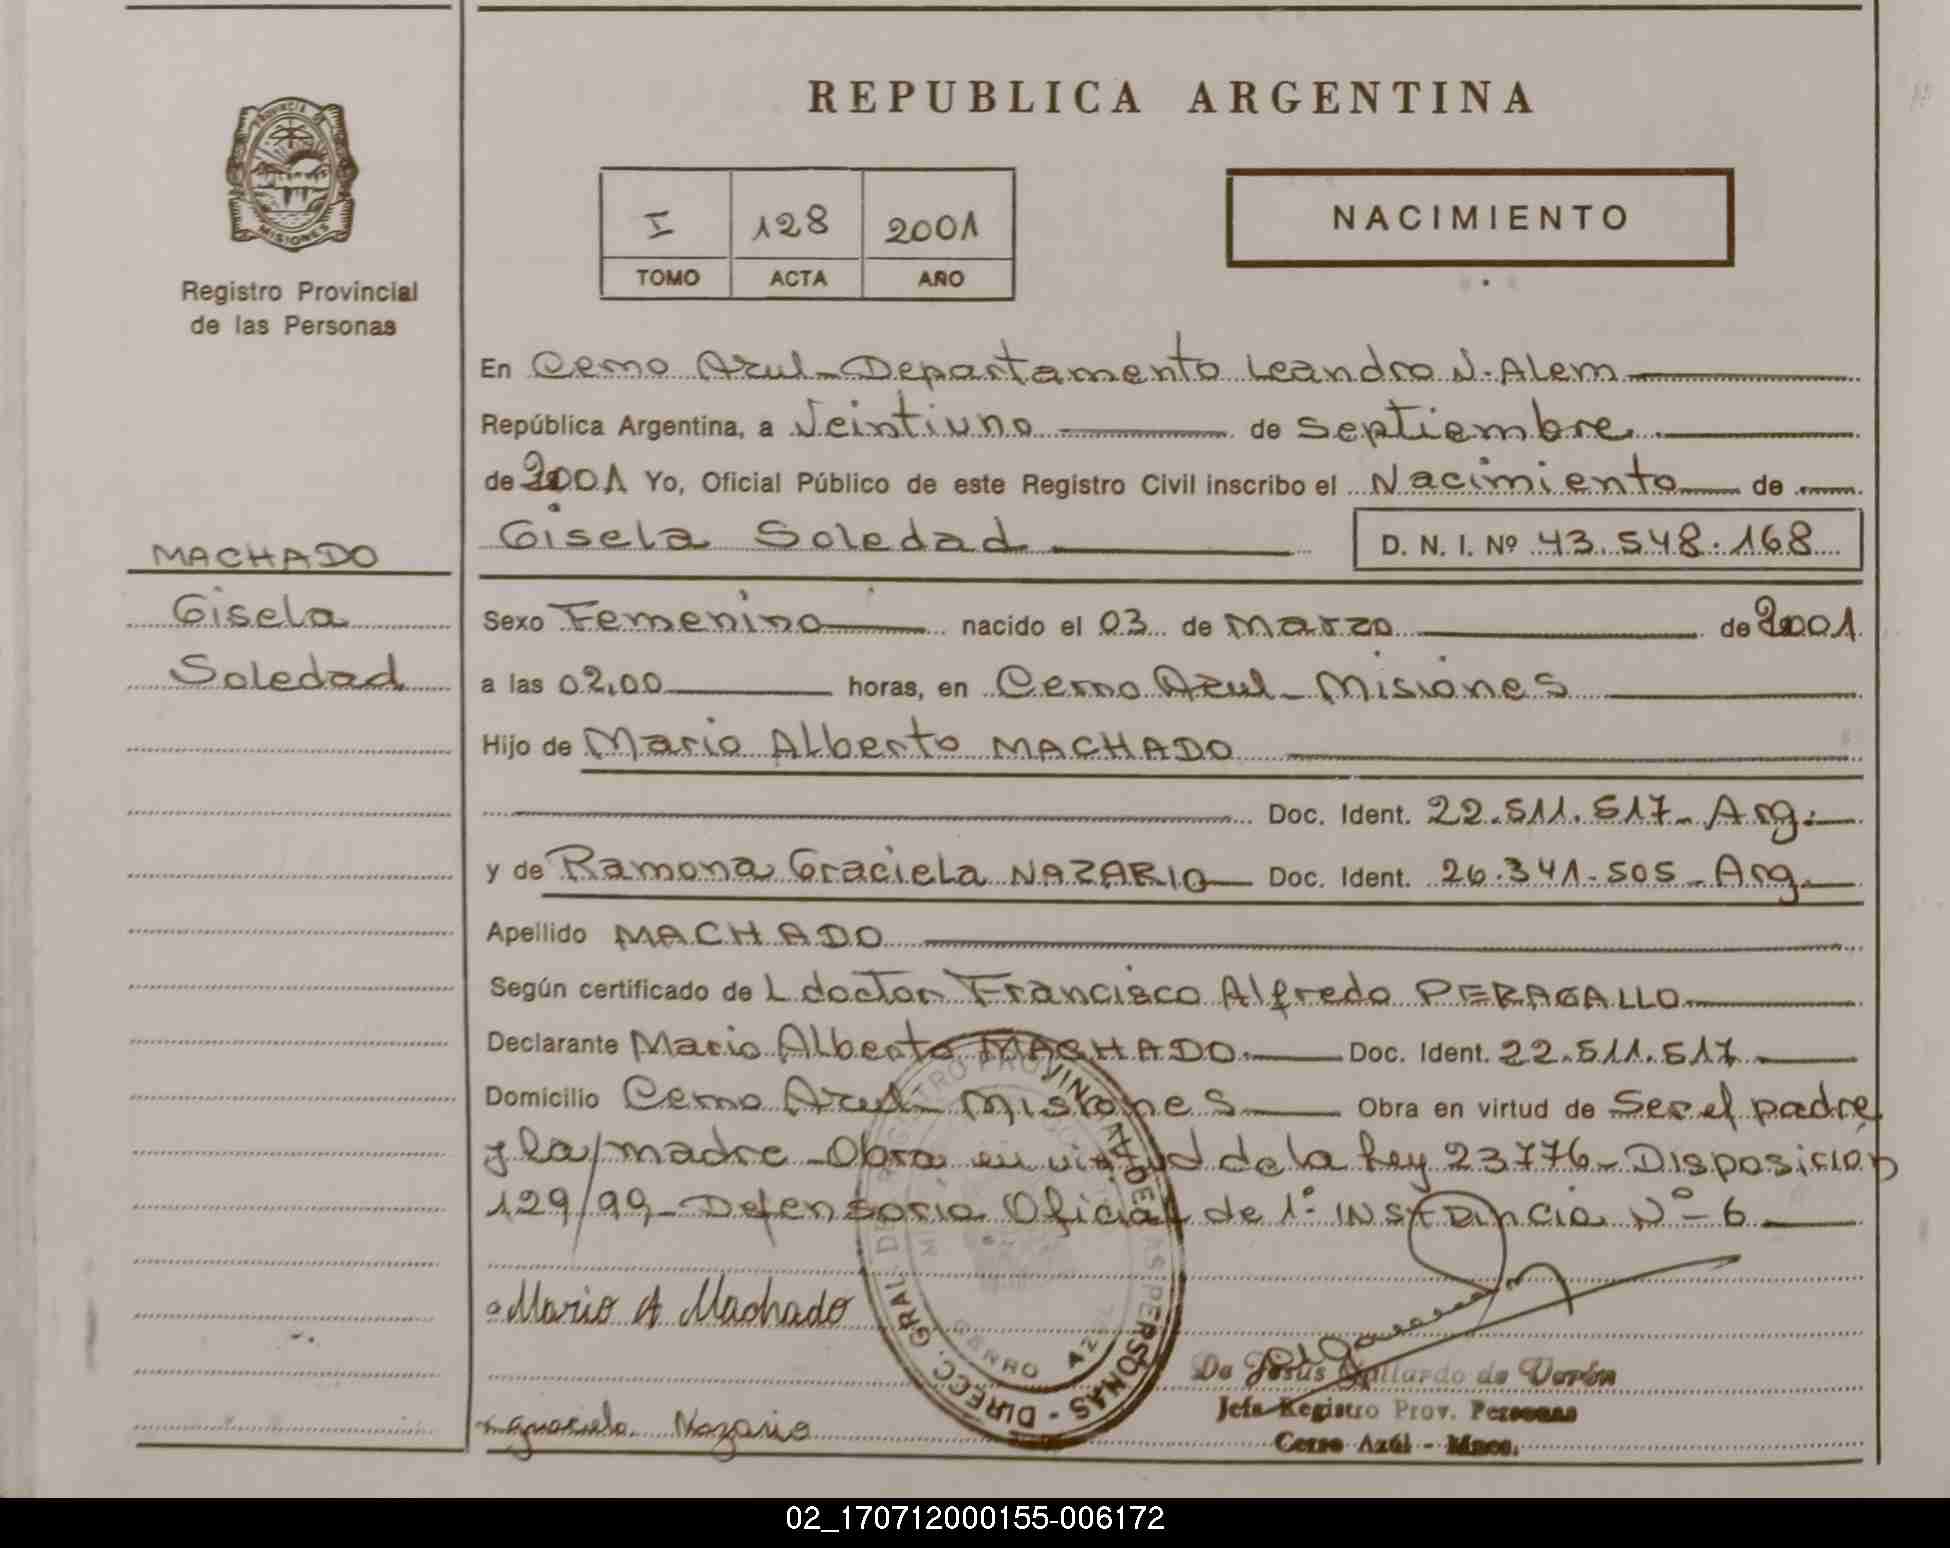 REPUBLICA ARGENTINA
PROVINCIA DE
MISIONES
Registro Provincial
de las Personas
I 128 2001
TOMO ACTA AÑO
NACIMIENTO
En Cerro Azul - Departamento Leandro N. Alem
República Argentina, a Veintiuno de Septiembre
de 2001 Yo, Oficial Público de este Registro Civil inscribo el Nacimiento de
Gisela Soledad D. N. I. Nº 43.548.168
MACHADO
Gisela
Soledad
Sexo Femenino nacido el 03 de Marzo de 2001
a las 02,00 horas, en Cerro Azul - Misiones
Hijo de Mario Alberto MACHADO
Doc. Ident. 22.511.517 - Arg.
y de Ramona Graciela NAZARIO Doc. Ident. 26.341.505 - Arg.
Apellido MACHADO
Según certificado de L doctor Francisco Alfredo PERAGALLO
Declarante Mario Alberto MACHADO Doc. Ident. 22.511.517
Domicilio Cerro Azul - Misiones Obra en virtud de Ser el padre
y la/madre - Obra en virtud de la Ley 23776 - Disposición
129/99 - Defensoria Oficial de 1º INSTAncia Nº 6
Mario A Machado
Graciela Nazario
DIRECC. GRAL. DEL REGISTRO PROVINCIAL DE LAS PERSONAS
CERRO AZUL
De Jesús Gallardo de Verón
Jefa Registro Prov. Personas
Cerro Azúl - Mnes.
02_170712000155-006172